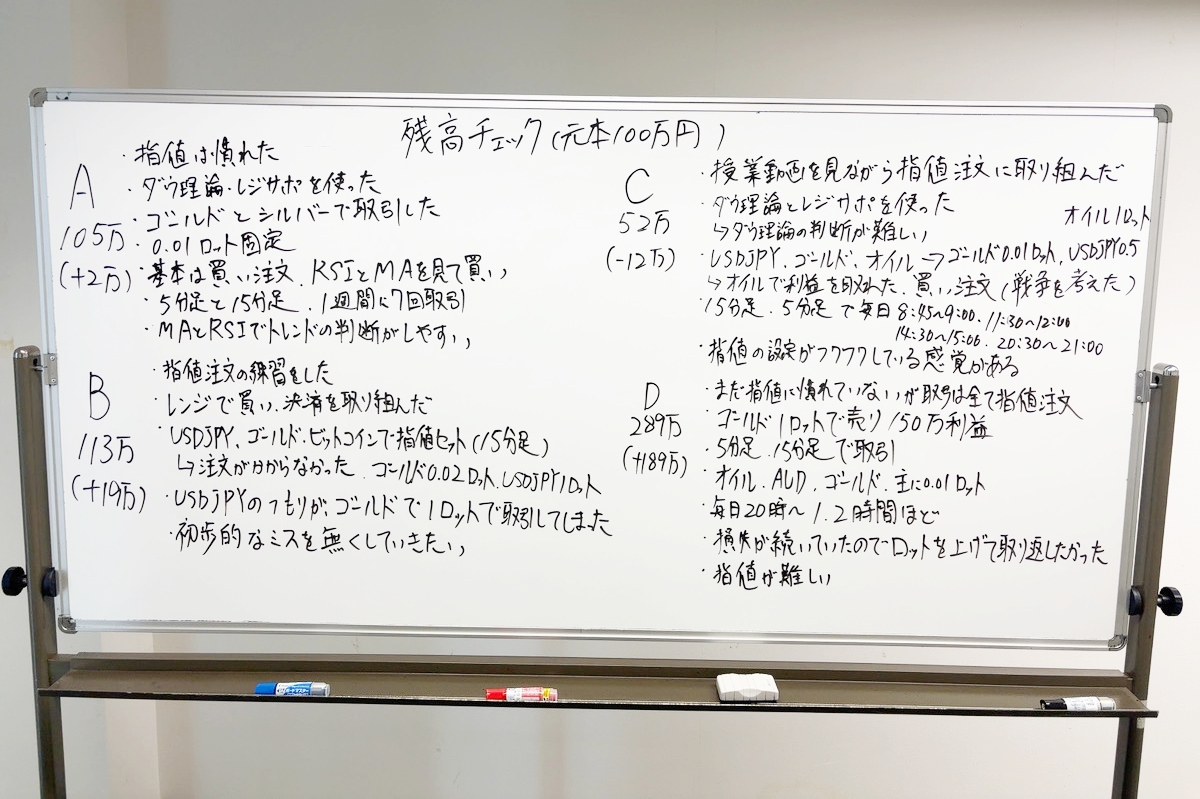 残高チェック(元本100万円)
A
105万
(+2万)
・指値は慣れた
・ダウ理論・レジサポを使った
・ゴールドとシルバーで取引した
・0.01ロット固定
・基本は買い注文、RSIとMAを見て買い
・5分足と15分足、1週間に7回取引
・MAとRSIでトレンドの判断がしやすい
B
113万
(+19万)
・指値注文の練習をした
・レンジで買い、決済を取り組んだ
・USDJPY、ゴールド・ビットコインで指値セット(15分足)
↳注文が分からなかった、ゴールド0.02ロット、USDJPY1ロット
・USDJPYのつもりが、ゴールドで1ロットで取引してしまった
・初歩的なミスを無くしていきたい
C
52万
(-12万)
・授業動画を見ながら指値注文に取り組んだ
・ダウ理論とレジサポを使った
↳ダウ理論の判断が難しい
オイル1ロット
・USDJPY、ゴールド、オイル→ゴールド0.01ロット、USDJPY0.5
↳オイルで利益を取れた、買い注文(戦争を考えた)
・15分足、5分足で毎日8:45~9:00、11:30~12:00
14:30~15:00、20:30~21:00
・指値の設定がフワフワしている感覚がある
D
289万
(+189万)
・まだ指値に慣れていないが取引は全て指値注文
・ゴールド1ロットで売り150万利益
・5分足、15分足で取引
・オイル、AUD、ゴールド、主に0.01ロット
・毎日20時~1、2時間ほど
・損失が続いていたのでロットを上げて取り返したかった
・指値が難しい